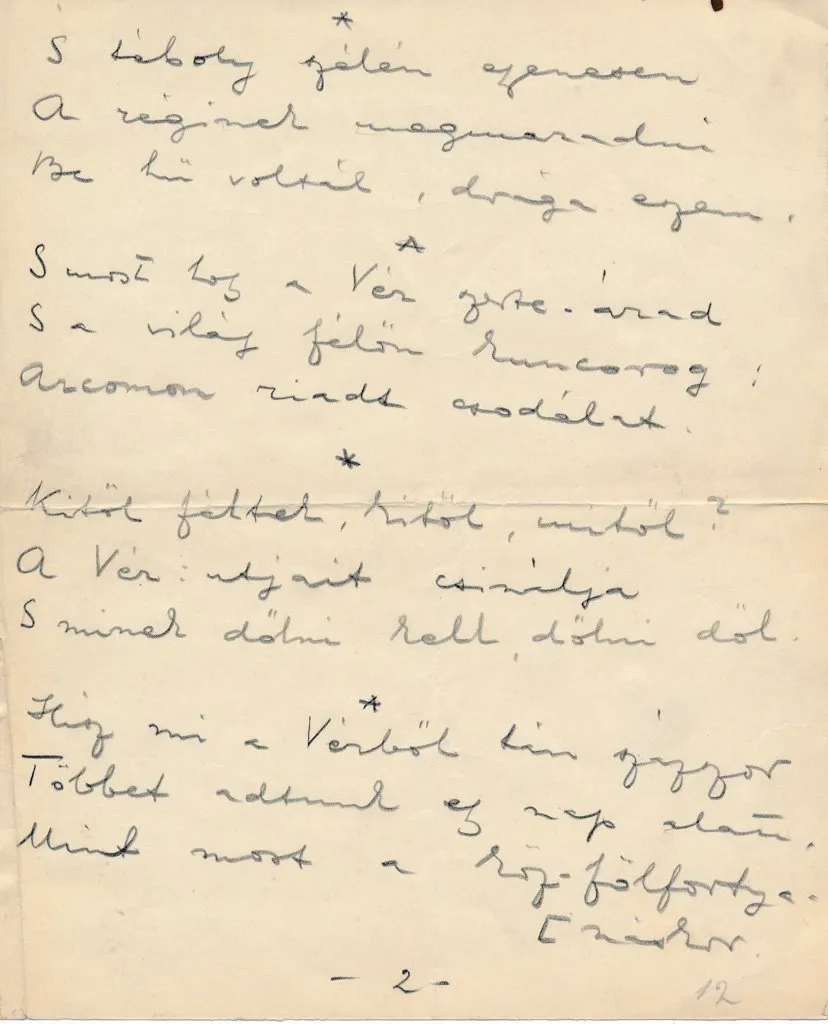 *
S téboly szélén egyenesen
A réginek megmaradni
Be hü voltál, drága eszem.
*
S most hogy a Vér szerte-árad
S a világ félőn kuncorog:
Arcomon riadt csodálat.
*
Kitől féltek, kitől, mitől?
A Vér: utjait csinálja
S minek dőlni kell, dőlni dől.
*
Hisz mi a Vérből tán százszor
Többet adtunk egy nap alatt,
Mint most a köz-fölfortya-
[náskor.
- 2 -
12